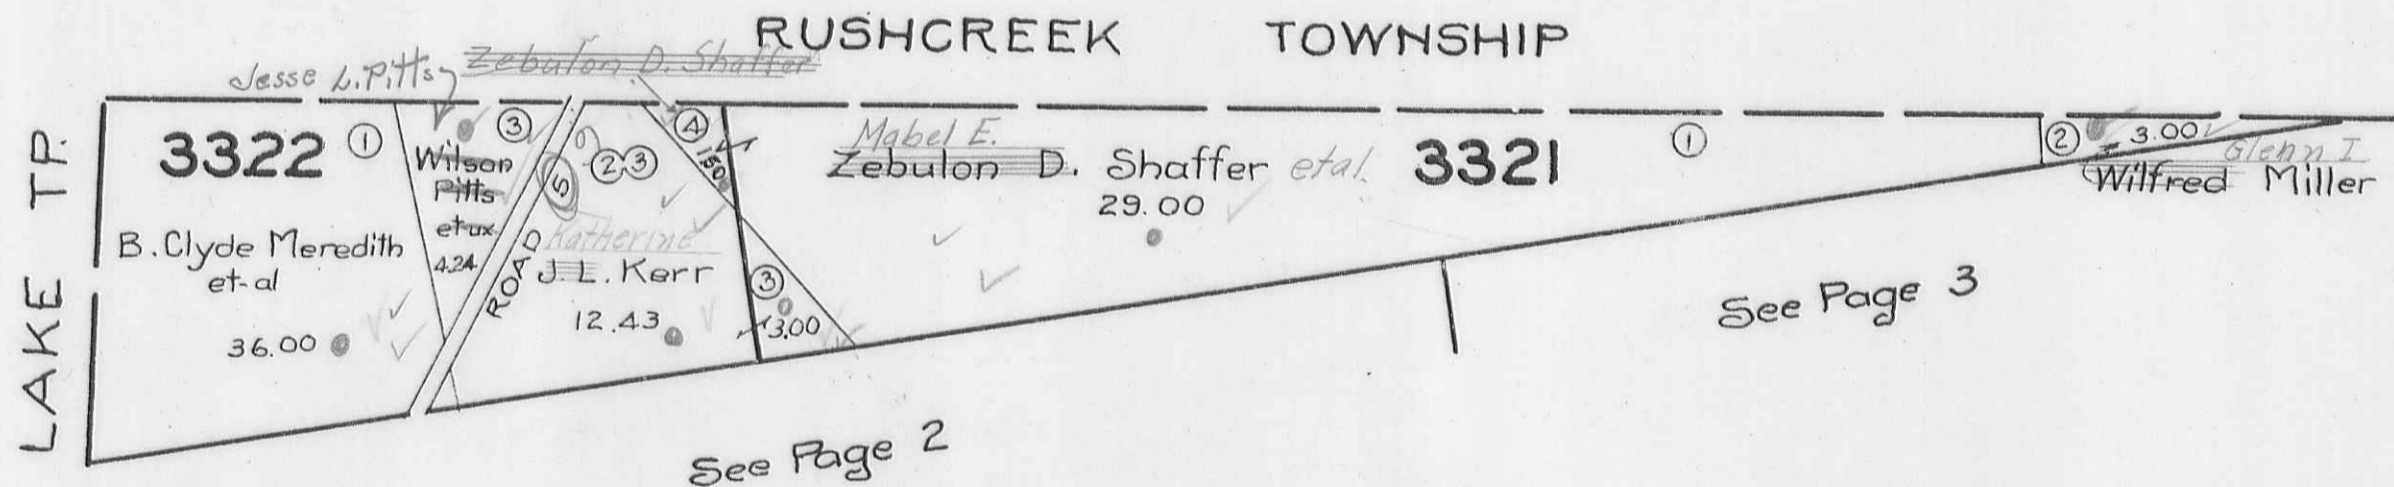 RUSHCREEK TOWNSHIP
Jesse L. Pitts
Zebulon D. Shaffer
LAKE TP.
3322 ①
B. Clyde Meredith
et-al
36.00
③
Wilson
Pitts
et ux
4.24
ROAD
⑤
②,③
Katherine
J. L. Kerr
12.43
④
1.50
③
3.00
Mabel E.
Zebulon D. Shaffer et al.
29.00
3321
①
② 3.00
Glenn I
Wilfred Miller
See Page 3
See Page 2